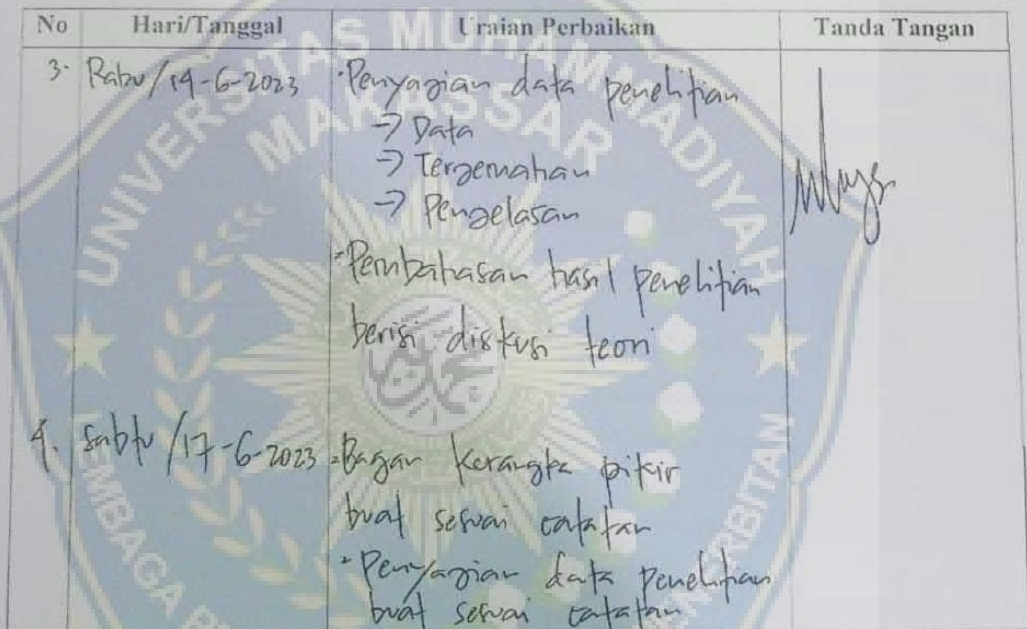 No Hari/Tanggal Uraian Perbaikan Tanda Tangan
3. Rabu/14-6-2023 - Penyajian data penelitian
→ Data
→ Terjemahan
→ Penjelasan
- Pembahasan hasil penelitian
berisi diskusi teori
4. Sabtu/17-6-2023 - Bagan kerangka pikir
buat sesuai catatan
- Penyajian data penelitian
buat sesuai catatan
UNIVERSITAS MUHAMMADIYAH
MAKASSAR
LEMBAGA